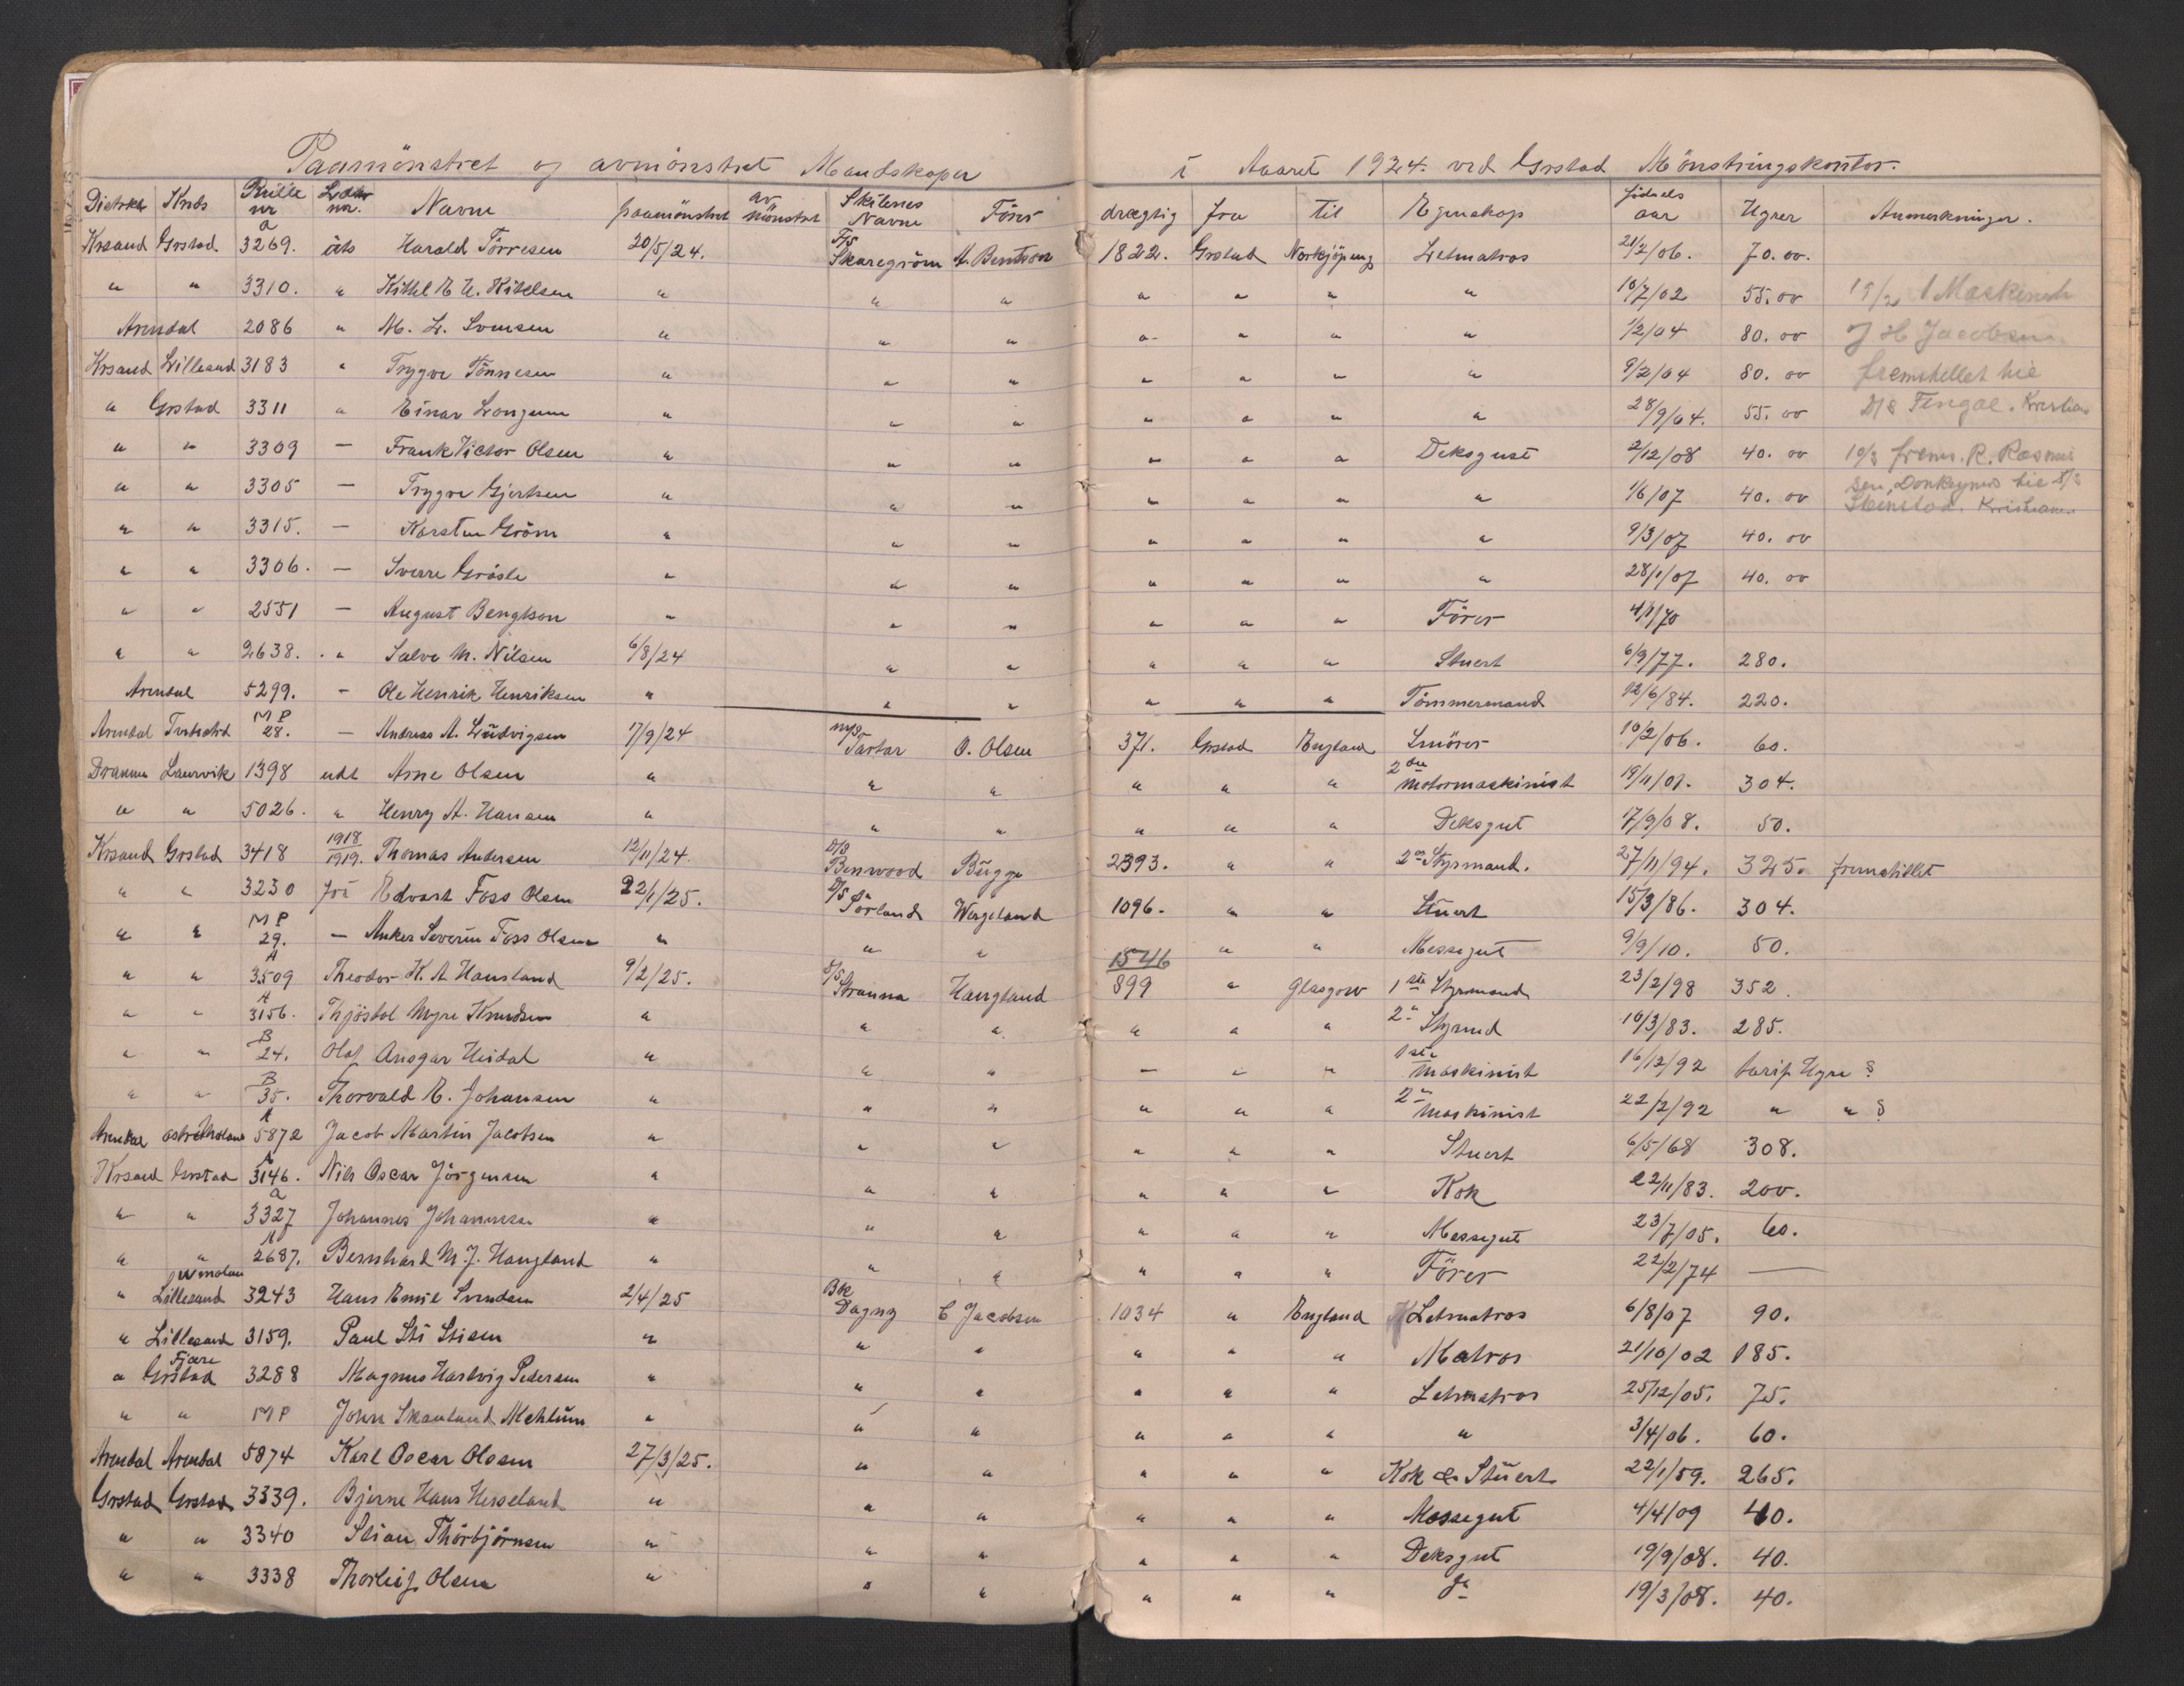 Paamönstret og avmönstret Mandskaper i Aaret 1924. ved Grstad Mönstringskontor.
Distrikt Krets Rulle nr Navne paamönstret av mönstret Skibenes Navne Förer drægtig fra til Egenskap födsels aar Hyrer Anmerkninger.
Krsand Grstad a 3269. äts Harald Törresen 20/5/24. F/S Skaregröm A. Bentson 1822. Grstad Norkjöping Letmatros 21/2/06. 70.00.
" " 3310. " Kittil E U. Kitelsen " " " " " " " 10/7/02 55.00 19/2 1 Maskinist
Arendal 2086 " M. L. Svensen " " " " " " " 1/2/04 80.00 J H Jacobsen
Krsand Lillesand 3183 " Trygve Tönnesen " " " " " " " 9/2/04 80.00 fremstillet hie
" Grstad 3311 " Einar Longum " " " " " " " 28/9/04. 55.00 D/S Fingal. Kristian
" " 3309 — Frank Victor Olsen " " " " " " Deksgust 2/12/08 40.00 19/3 frems. R. Rasmus
" " 3305 — Trygve Gjertsen " " " " " " " 1/6/07 40.00 sen, Donkeymd hie D/S
Stenstad. Kristians
" " 3315. — Karsten Gröm " " " " " " " 9/3/07 40.00
" " 3306. — Sverre Gröste " " " " " " " 28/1/07 40.00
" " 2551 — August Bengtson " " " " " " Förer 4/1/70
" " 2638. " Salve M. Nilsen 6/8/24 " " " " " Stuert 6/9/77. 280.
Arendal 5299. - Ole Henrik Henriksen " " " " " " Tömmermand 12/6/84. 220.
Arendal MP 28. — Andreas A. Ludvigsen 17/9/24 M/S Tartar O. Olsen 371. Grstad England Smörer 10/2/06. 60.
Drammen Laurvik 1398 udt Arne Olsen " " " " " " 2den Motormaskinist 19/11/01. 304.
" " 5026. " Henry A. Hansen " " " " " " Deksgut 17/9/08. 50.
Krsand Grstad 3418 1918/1919. Thomas Andersen 12/11/24. D/S Benwood Bugge 2393. " " 2en Styrmand. 27/11/94. 325. fremstillet
" " 3230 för Edvart Foss Olsen 22/1/25. D/S Sörland Wergeland 1096. " " Stuert 15/3/86. 304.
" " MP 29. — Anker Severin Foss Olsen " " " " " Messegut 9/9/10. 50.
" " A 3509 Theodor K. A Hausland 9/2/25. S/S Stranna Haugland 1546 899 " Glasgow 1ste Styrmand 23/2/98 352.
" " A 3156. Thjöstol Myre Knudsen " " " " " " 2" Styrmd 10/3/83. 285.
" " B 24. Olaf Ansgar Heidal " " " — " " 1ste Maskinist 16/12/92 tarif Hyre §
" " B 35. Thorvald E. Johansen " " " " " " 2" Maskinist 22/2/92 " " §
Arendal A 5872 Jacob Martin Jacobsen " " " " " " Stuert 6/5/68 308.
Krsand Grstad A 3146. Nils Oscar Jörgensen " " " " " " Kok 22/11/83. 200.
" " a 3327 Johannes Johannessen " " " " " " Messegut 23/7/05. 60.
" " A 2687. Bernhard M. J. Haugland " " " " " " Förer 22/2/74 —
" Lillesand 3243 Hans Emil Svendsen 2/4/25 Bk Dagny C Jacobsen 1034 " England Letmatros 6/8/07 90.
" Lillesand 3159. Paul Sti Stisen " " " " " " Matros 21/10/02 185.
" Fjære Grstad 3288 Magnus Hartvig Pedersen " " " " " " Letmatros 25/12/05. 75.
" " MP John Skauland Mehlum " " " " " " " 3/4/06. 60.
Arendal Arendal 5874 Karl Oscar Olssen 27/3/25. " " " " " Kok & Stuert 22/1/59. 265.
Grstad Grstad 3339. Bjerne Hans Hesseland " " " " " " Messegut 4/4/09 40.
" " 3340 Stian Thorbjörnsen " " " " " " Deksgut 19/9/08. 40.
" " 3338 Thorleif Olsen " " " " " " Do 19/3/08. 40.